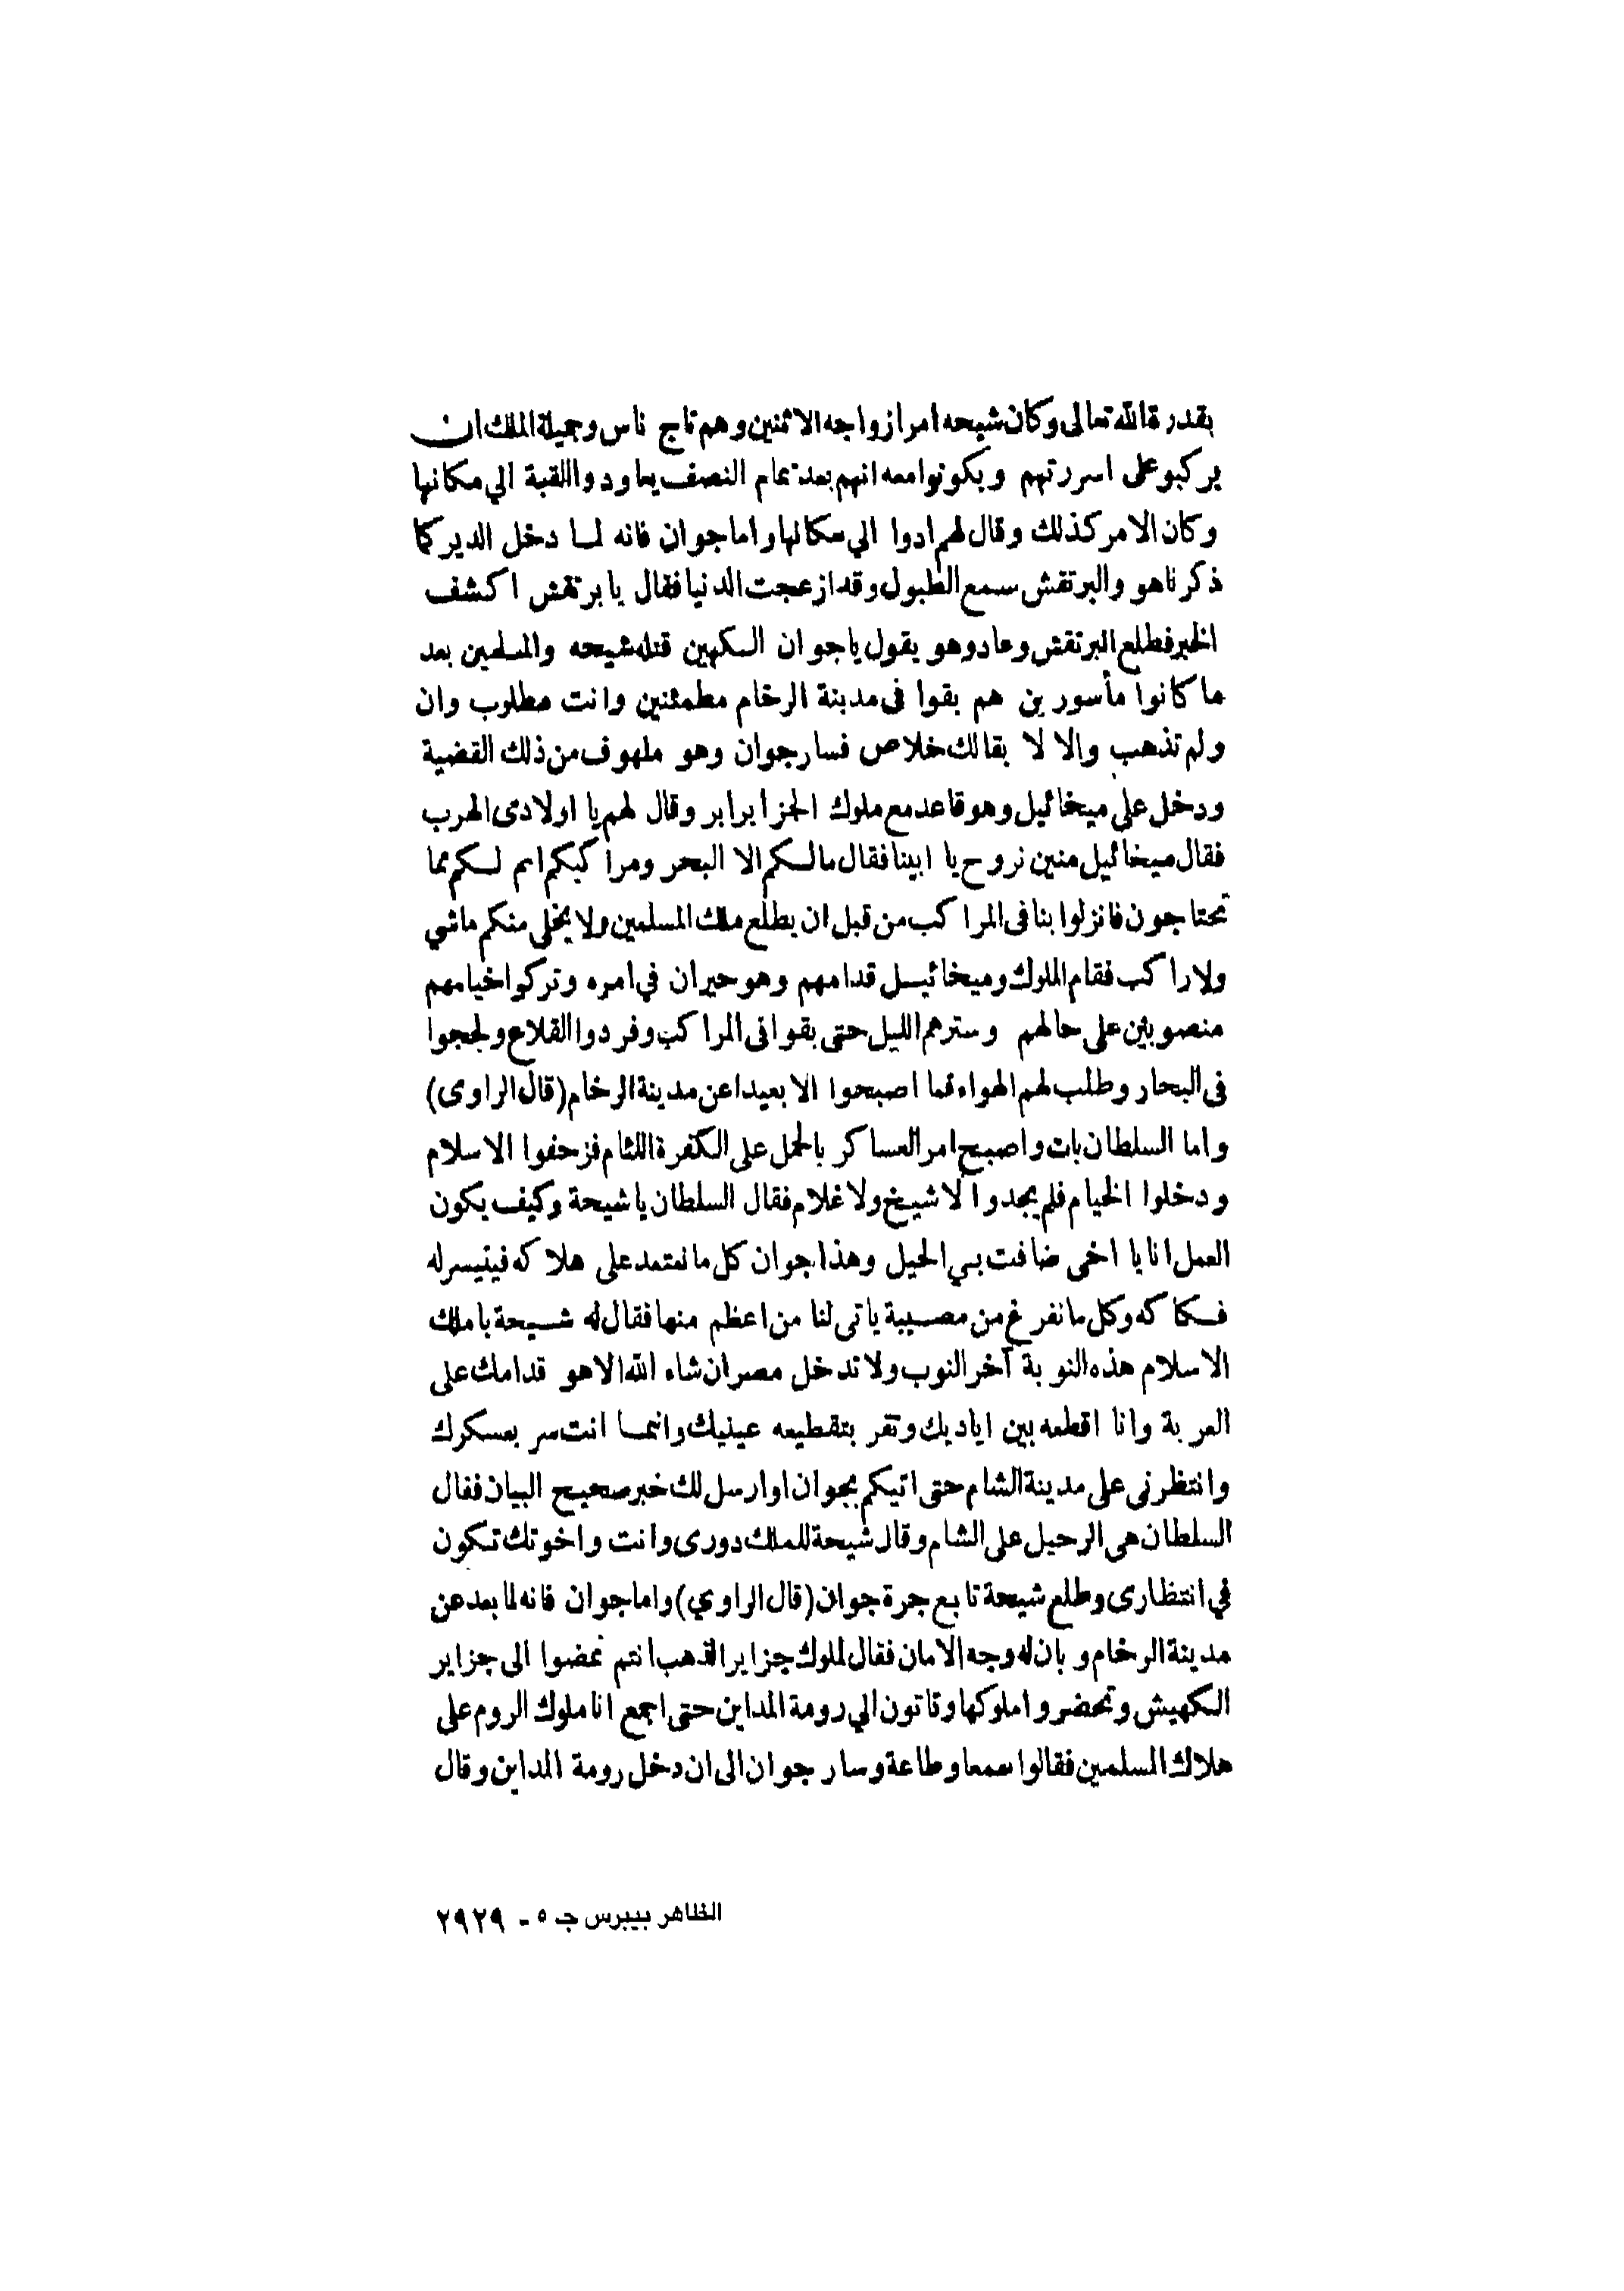 بقدرة الله تعالى وكان شيحه امر ازواجه الاثنين وهم تاج ناس وجميلة الملك ان
يركبو على اسررتهم ويكونوا معه انهم بعد تمام النصف يعاودوا القبة الي مكانها
وكان الامر كذلك وقال لهم ادوا الي مكانها واما جوان فانه لما دخل الدير كما
ذكرنا هو والبرتقش سمع الطبول وقد ازعجت الدنيا فقال يا برتقش اكشف
الخبر فطلع البرتقش وعاد وهو يقول يا جوان السكهين قتله شيحه والمسلمين بعد
ما كانوا مأسورين هم بقوا فى مدينة الرخام مطمئنين وانت مطلوب وان
ولم تذهب والا لا بقالك خلاص فسار جوان وهو ملهوف من ذلك القضية
ودخل على ميخائيل وهو قاعد مع ملوك الجزاير ابر وقال لهم يا اولادى الهرب
فقال ميخائيل منين نروح يا ابينا فقال مالكم الا البحر ومراكبكم اسم لكم مما
تحتاجون فانزلوا بنا فى المراكب من قبل ان يطلع ملك المسلمين ولا يخلى منكم ماشي
ولا راكب فقام الملوك وميخائيل قدامهم وهو حيران في امره وتركوا خيامهم
منصوبين على حالهم وسترهم الليل حتى بقوا فى المراكب وفردوا القلاع ولججوا
فى البحار وطلب لهم الهواء فما اصبحوا الا بعيدا عن مدينة الرخام (قال الراوى)
واما السلطان بات واصبح امر العساكر بالحمل على الكفرة اللئام فزحفوا الاسلام
ودخلوا الخيام فلم يجدوا لا شيخ ولا غلام فقال السلطان يا شيحة وكيف يكون
العمل انا يا اخى ضاقت بي الحيل وهذا جوان كل ما نعتمد على هلاكه فيتيسر له
فكاكه وكل ما نفرغ من مصيبة ياتى لنا من اعظم منها فقال له شيحة يا ملك
الاسلام هذه النوبة آخر النوب ولا تدخل مصر ان شاء الله الا هو قدامك على
العربة وانا اقطعه بين اياديك وتقر بتقطيعه عينيك وانما انت سر بعسكرك
وانتظرنى على مدينة الشام حتى اتيكم بجوان او ارسل لك خبر صحيح البيان فقال
السلطان هى الرحيل على الشام وقال شيحة للملك دورى وانت واخوتك تكون
في انتظارى وطلع شيحة تابع جرة جوان (قال الراوي) واما جوان فانه لما بعد عن
مدينة الرخام وبان له وجه الامان فقال لملوك جزاير الذهب انتم تمضوا الى جزاير
الكهيش وتحضروا ملوكها وتاتون الي رومة المداين حتى اجمع انا ملوك الروم على
هلاك المسلمين فقالوا سمعا وطاعة وسار جوان الى ان دخل رومة المداين وقال
الظاهر بيبرس جـ ٥ - ٢٩٢٩